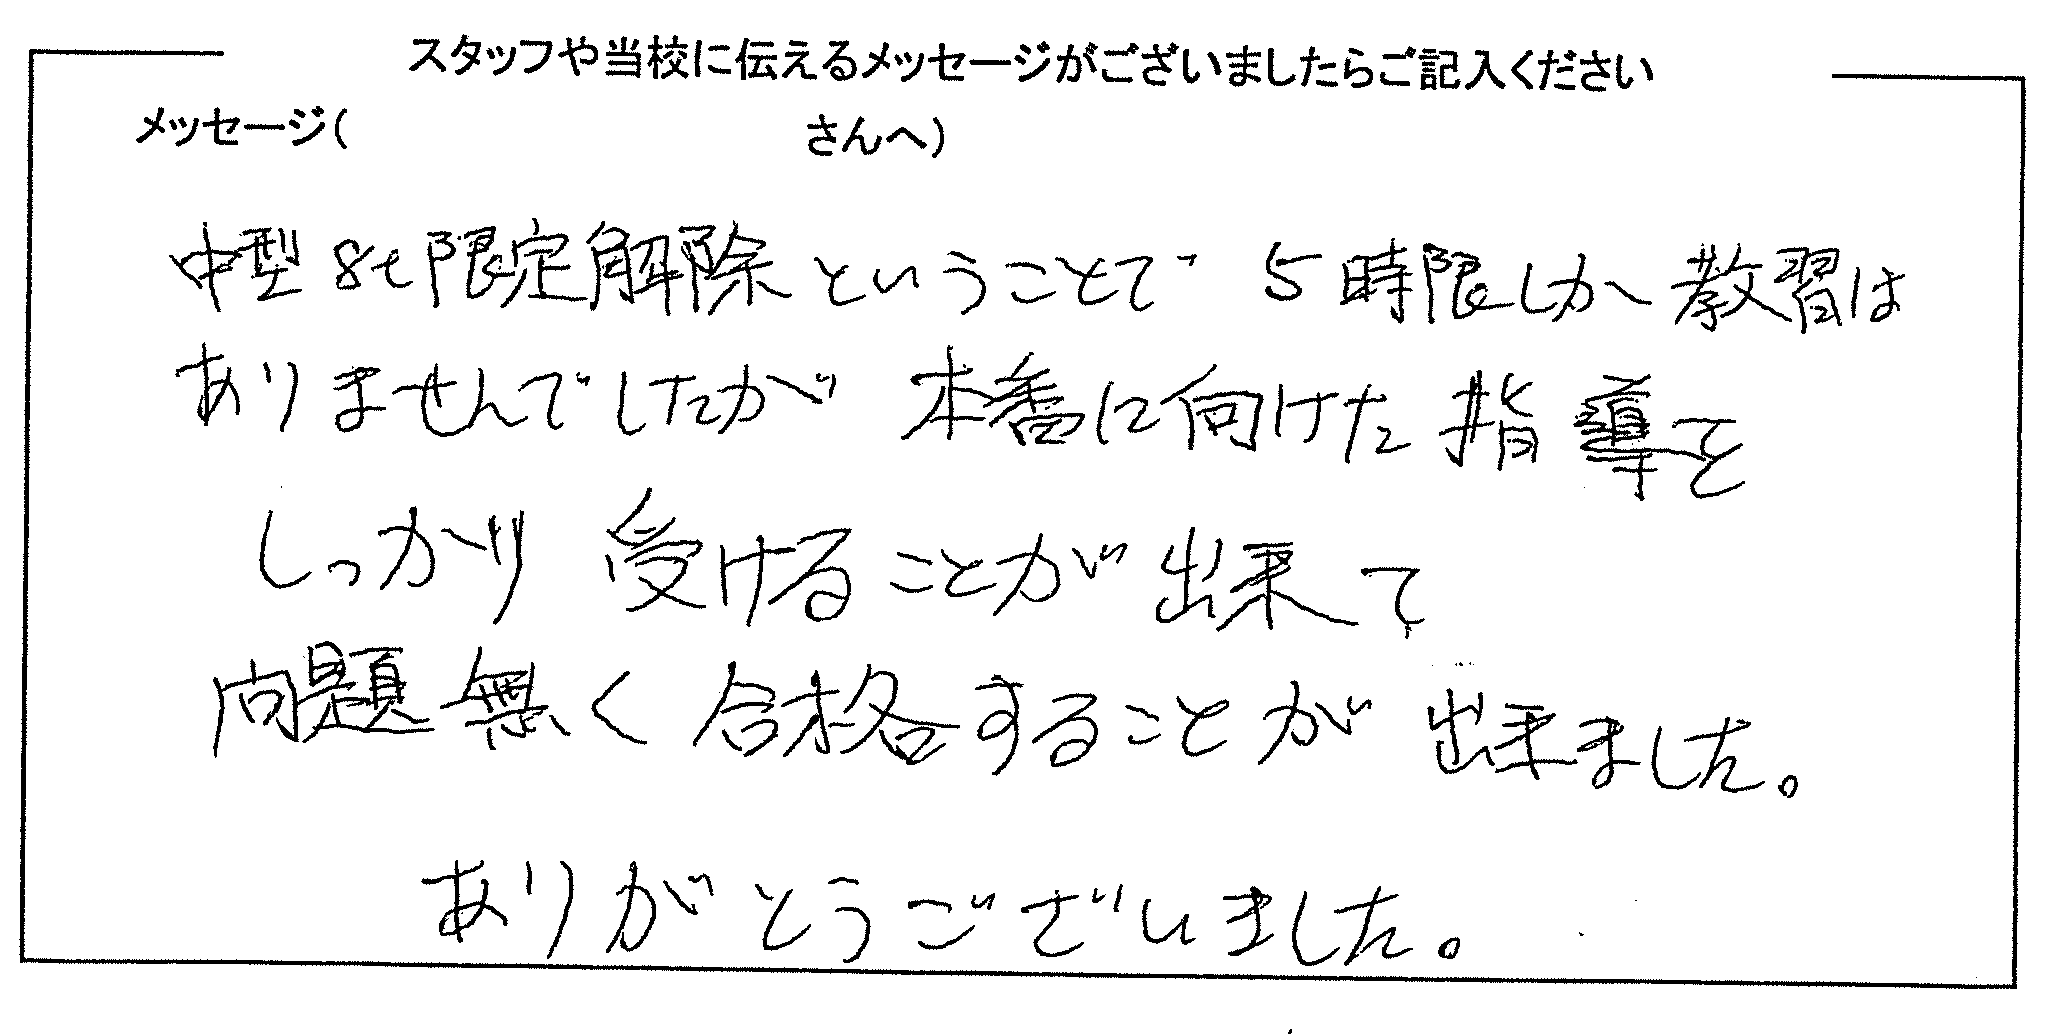 スタッフや当校に伝えるメッセージがございましたらご記入ください
メッセージ( さんへ)
中型8t限定解除ということで 5時限しか教習は
ありませんでしたが 本番に向けた指導を
しっかり受けることが出来て
問題無く合格することが出来ました。
ありがとうございました。